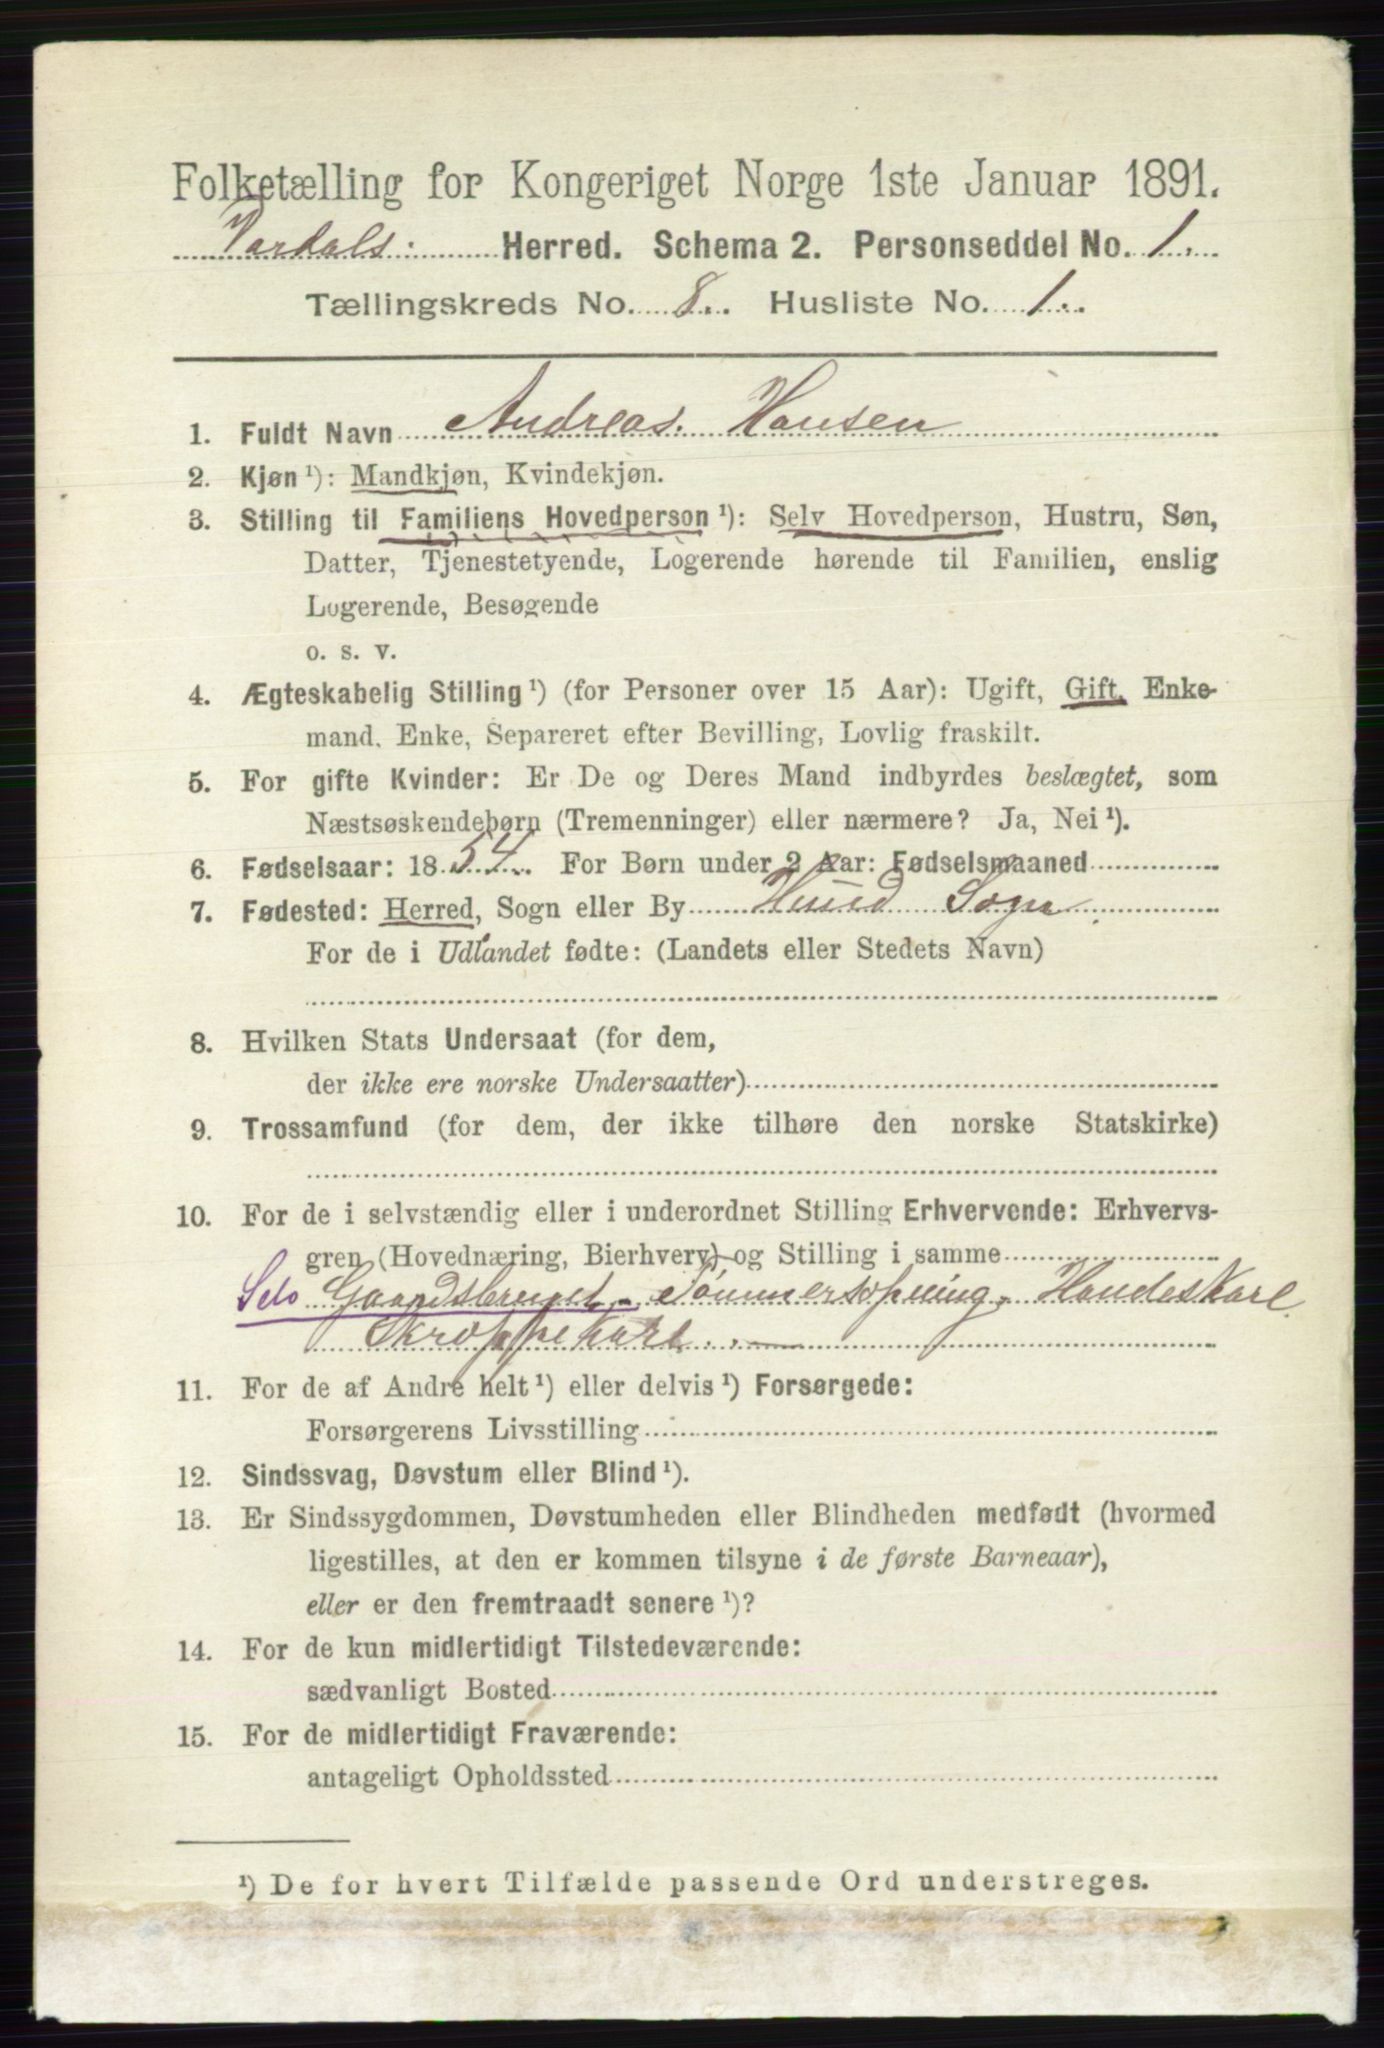 Folketælling for Kongeriget Norge 1ste Januar 1891.
Vardals Herred. Schema 2. Personseddel No. 1.
Tællingskreds No. 8. Husliste No. 1.
1. Fuldt Navn Andreas. Hansen
2. Kjøn ¹): Mandkjøn, Kvindekjøn.
3. Stilling til Familiens Hovedperson ¹): Selv Hovedperson, Hustru, Søn,
Datter, Tjenestetyende, Logerende hørende til Familien, enslig
Logerende, Besøgende
o. s. v.
4. Ægteskabelig Stilling ¹) (for Personer over 15 Aar): Ugift, Gift, Enke-
mand, Enke, Separeret efter Bevilling, Lovlig fraskilt.
5. For gifte Kvinder: Er De og Deres Mand indbyrdes beslægtet, som
Næstsøskendebørn (Tremenninger) eller nærmere? Ja, Nei ¹).
6. Fødselsaar: 1854. For Børn under 2 Aar: Fødselsmaaned
7. Fødested: Herred, Sogn eller By Hund Sogn
For de i Udlandet fødte: (Landets eller Stedets Navn)
8. Hvilken Stats Undersaat (for dem,
der ikke ere norske Undersaatter)
9. Trossamfund (for dem, der ikke tilhøre den norske Statskirke)
10. For de i selvstændig eller i underordnet Stilling Erhvervende: Erhvervs-
gren (Hovednæring, Bierhverv) og Stilling i samme
Selv Gaardsbruget
11. For de af Andre helt ¹) eller delvis ¹) Forsørgede:
Forsørgerens Livsstilling
12. Sindssvag, Døvstum eller Blind ¹).
13. Er Sindssygdommen, Døvstumheden eller Blindheden medfødt (hvormed
ligestilles, at den er kommen tilsyne i de første Barneaar),
eller er den fremtraadt senere ¹)?
14. For de kun midlertidigt Tilstedeværende:
sædvanligt Bosted
15. For de midlertidigt Fraværende:
antageligt Opholdssted
¹) De for hvert Tilfælde passende Ord understreges.